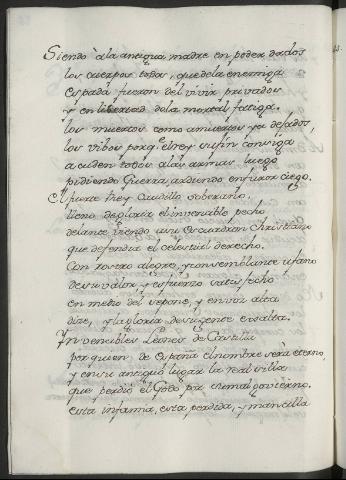 Siendo à la antigua madre en poder dados
los cuerpos todos, que de la enemiga
espada fueron del vivir privados
y en libertad de la mortal fatiga.
los muertos como a muertos ya dejados,
los vibos porq. el rey su fin consiga
acuden todos a las armas luego
pidiendo Guerra, ardiendo en furor ciego.
El fuerte Rey Caudillo soberano,
lleno de gloria el invencible pecho
delante viendo un Escuadron Christiano
que defendia el celestial derecho.
Con rostro alegre, y con semblante ufano
de su valor, y esfuerzo satisfecho
en medio del se pone, y en voz alta
dize, y la gloria de su gente exsalta.
Invencibles Leones de Castilla
por quien de España el nombre serà eterno,
y en su antiguo lugar la real silla
que perdiò el Godo por su mal govierno.
esta infamia, esta perdida, y mancilla